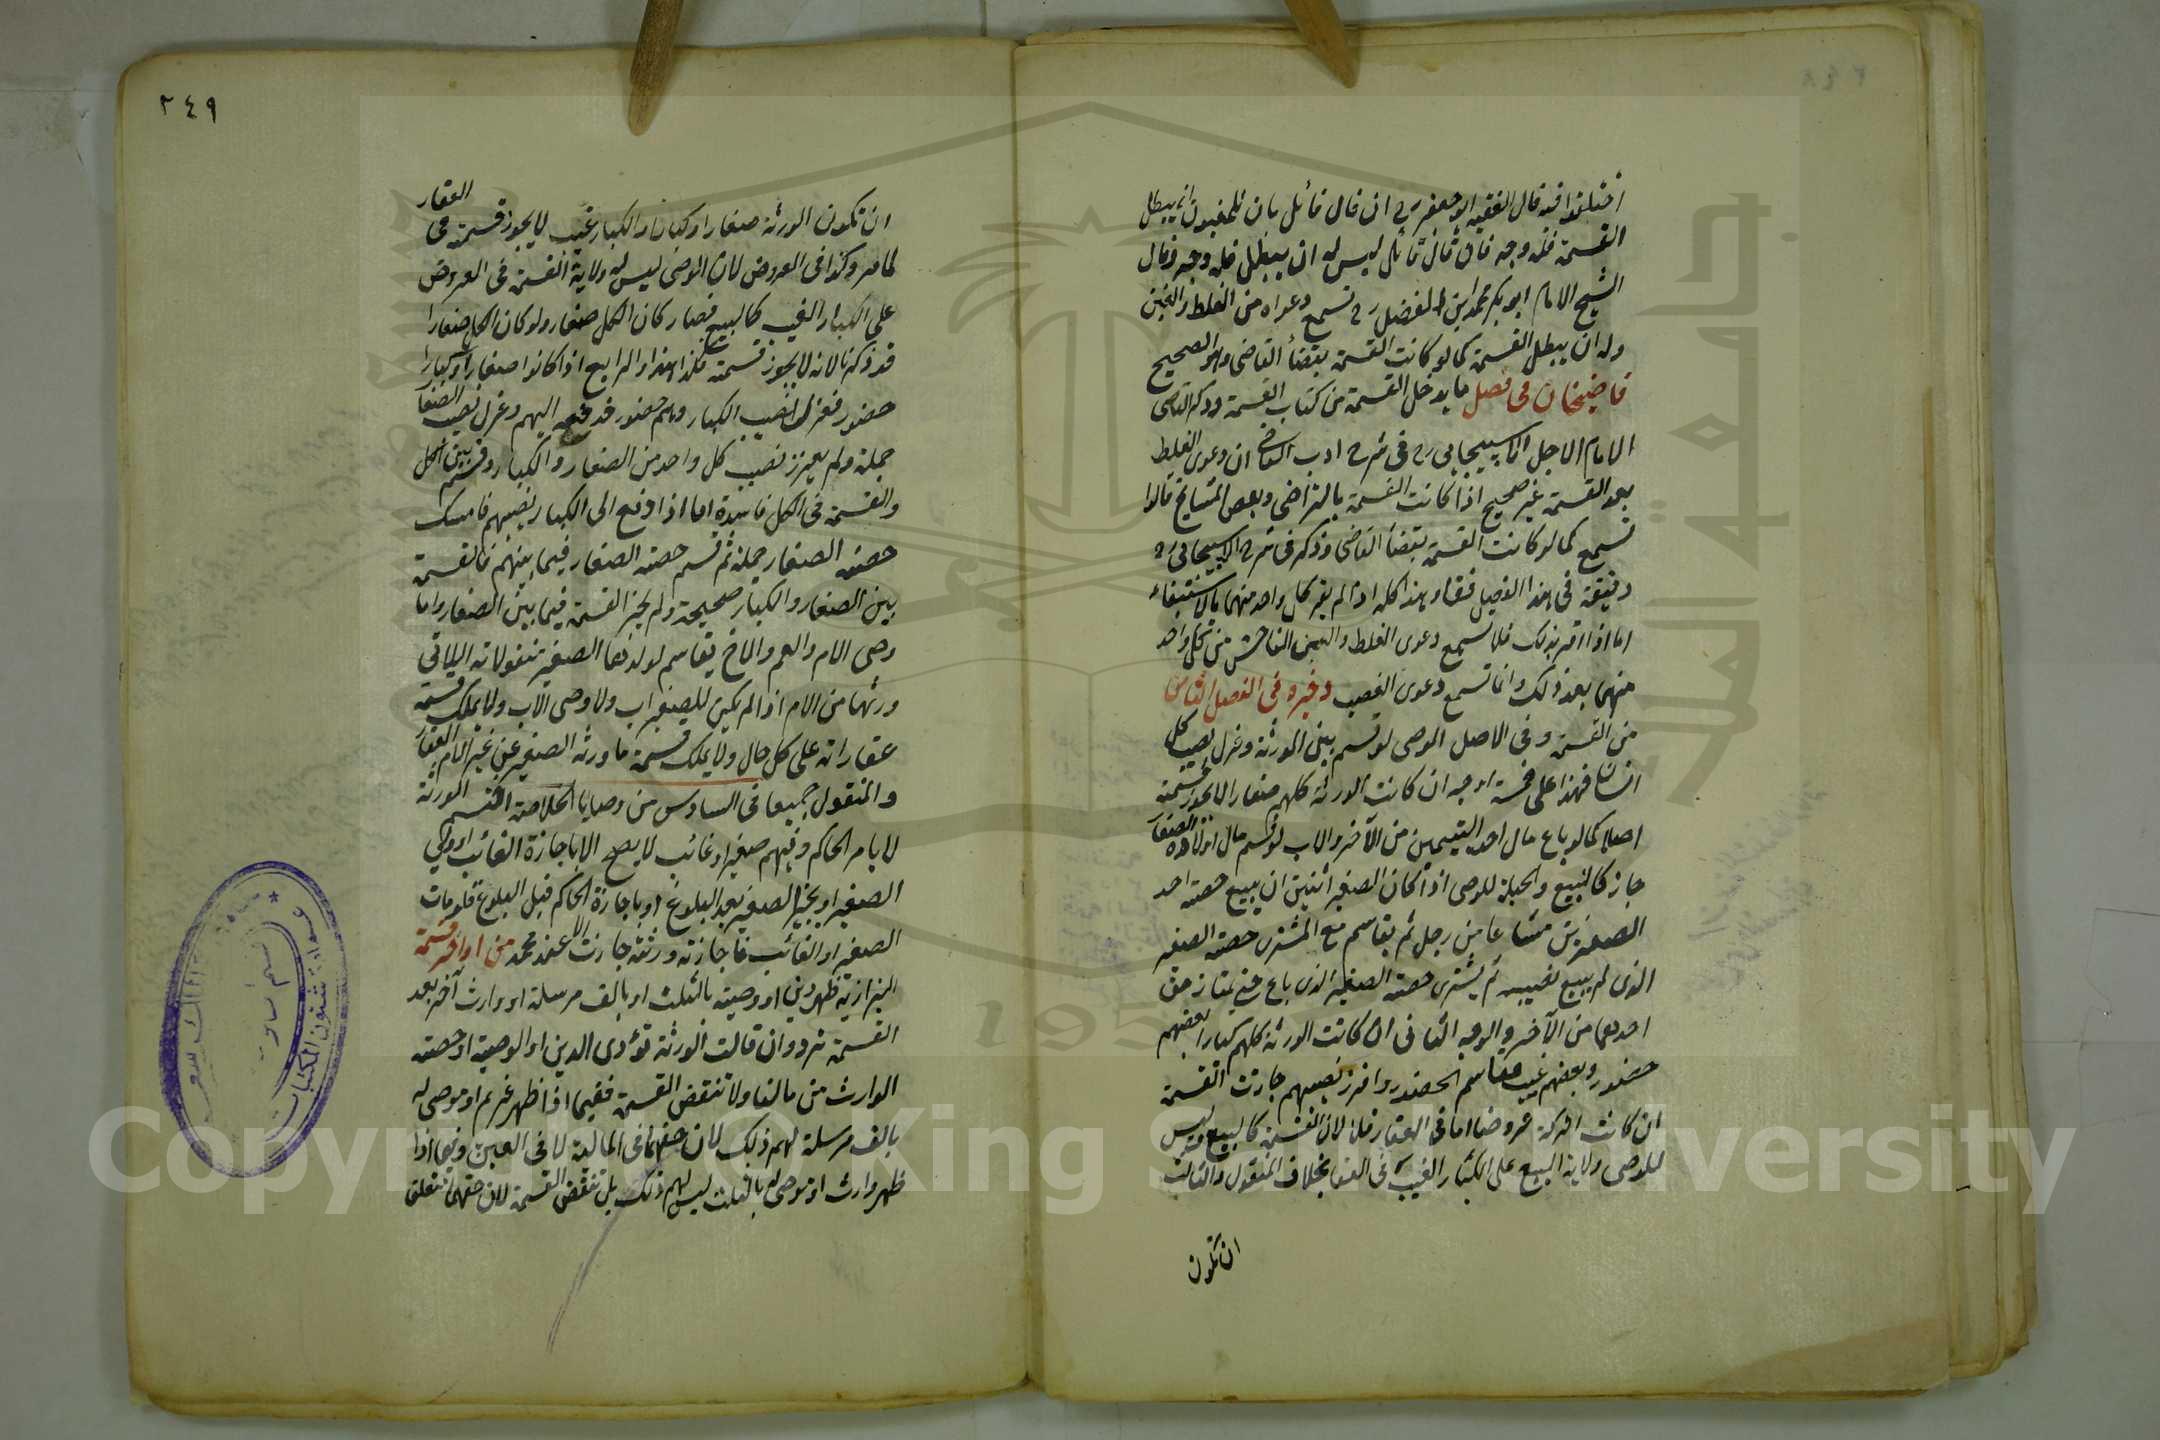 اختلفوا فيه قال الفقيه ابو جعفر رح ان قال قائل بان للمغبون ان يبطل
القسمة فله وجه فان قال قائل ليس له ان يبطل فله وجه وقال
الشيخ الامام ابو بكر محمد ابن الفضل رح تسمع دعواه من الغلط والغبن
وله ان يبطل القسمة كما لو كانت القسمة بقضأ القاضى وهو الصحيح
قاضيخان فى فصل ما يدخل القسمة من كتاب القسمة وذكر القاضى
الامام الاجل الاسبيجابى رح فى شرح ادب القاضى ان دعوى الغلط
بعد القسمة غير صحيح اذا كانت القسمة بالتراضى وبعض المشايخ قالوا
تسمع كما لو كانت القسمة بقضأ القاضى وذكر فى شرح الاسبيجابى رح
دقيقة فى هذا الفصل فقال وهذا كله اذا لم يقر كل واحد منهما بالاستيفاء
اما اذا اقر بذلك فلا تسمع دعوى الغلط والغبن الفاحش من كل واحد
منهما بعد ذلك وانما تسمع دعوى الغصب ذخيره فى الفصل الثامن
من القسمة وفى الاصل الوصى لو قسم بين الورثة وعزل نصيب كل
انسان فهذا على خمسة اوجه ان كانت الورثة كلهم صغارا لا يجوز قسمته
اصلا كما لو باع مال احد اليتيمين من الآخر والاب لو قسم مال اولاده الصغار
جاز كالبيع والحيلة للوصى اذا كان الصغير اثنين ان يبيع حصة احد
الصغيرين مشاعا من رجل ثم يقاسم مع المشترى حصة الصغير
الذى لم يبيع نصيبه ثم يشترى حصة الصغير الذى باع حتى يمتاز حق
احدهما من الآخر والوجه الثانى ان كانت الورثة كلهم كبارا بعضهم
حضور وبعضهم غيب فقاسم الحضور وافرز نصيبهم جازت القسمة
ان كانت التركة عروضا اما فى العقار فلا لان القسمة كالبيع وليس
للوصى ولاية البيع على الكبار الغيب فى العقار بخلاف المنقول والثالث
ان تكون
٢٤٩
ان تكون الورثة صغارا وكبارا والكبار غيب لا يجوز قسمته فى العقار
لما مر وكذا فى العروض لان الوصى ليس له ولاية القسمة فى العروض
على الكبار الغيب كالبيع فصار كان الكل صغار ولو كان الكل صغارا
قد ذكرنا لانه لا يجوز قسمته فكذا هذا والرابع اذا كانوا صغارا وكبارا
حضور فعزل نصيب الكبار وهم حضور فدفعه اليهم وعزل نصيب الصغار
جملة ولم يعزز نصيب كل واحد من الصغار والكبار وقسم بين الكل
والقسمة فى الكل فاسدة اما اذا دفع الى الكبار نصيبهم فامسك
حصة الصغار جملة ثم قسم حصة الصغار فيما بينهم فالقسمة
بين الصغار والكبار صحيحة ولم يجز القسمة فيما بين الصغار واما
وصى الام والعم والاخ يقاسم لولدهما الصغير منقولاته الباقى
ورثها من الام اذا لم يكن للصغير اب ولا وصى الاب ولا يملك قسمة
عقاراته على كل حال ولا يملك قسمة ما ورثه الصغير عن غير الام العقار
والمنقول جميعا فى السادس من وصايا الخلاصة اقتسم الورثة
لا بامر الحاكم وفيهم صغير او غائب لا يصح الا باجازة الغائب او ولى
الصغير او يجيز الصغير بعد البلوغ او باجازة الحاكم قبل البلوغ فلو مات
الصغير او الغائب فاجازته ورثته جازت الا عند محمد من اواخر قسمة
البزازية ظهر دين او وصية بالثلث او بالف مرسلة او وارث آخر بعد
القسمة ترد وان قالت الورثة نؤدى الدين او الوصية او حصة
الوارث من مالنا ولا تنقض القسمة ففيما اذا ظهر غريم او موصى له
بالف مرسلة لهم ذلك لان حقهما فى المالية لا فى العين وفيما اذا
ظهر وارث او موصى له بالثلث ليس لهم ذلك بل تنقض القسمة لان حقهما تتعلق
وزارة شئون المكتبات
Copyright © King Saud University
جامعة الملك سعود
1957